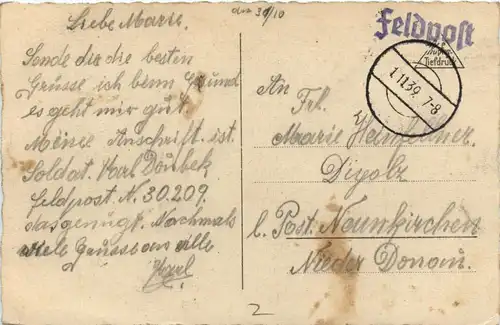 den 30/10
Liebe Marie.
Sende dir die besten
Grüsse ich benn Gsund
es geht mir gut
Meine Anschrift ist.
Soldat. Karl
Feldpost. N. 30.209.
dasgenügt. Nochmals
viele Grüsse an alle
Karl
Feldpost
Tiefdruck
1.11.39. 7-8
An
Frl.
Marie
Digolz
b. Post. Neunkirchen
Nieder Donau.
2